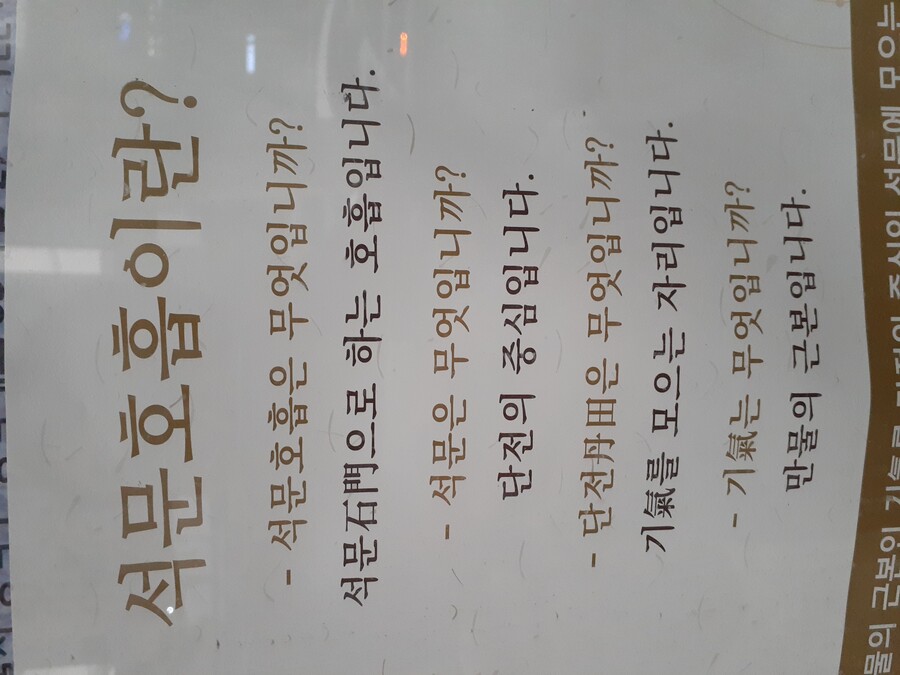 석문호흡이란?
- 석문호흡은 무엇입니까?
석문石門으로 하는 호흡입니다.
- 석문은 무엇입니까?
단전의 중심입니다.
- 단전丹田은 무엇입니까?
기氣를 모으는 자리입니다.
- 기氣는 무엇입니까?
만물의 근본입니다.
물의 근본인 기氣를 단전의 중심인 석문에 모으는